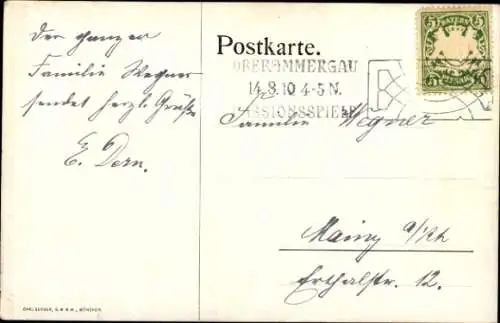 Der ganzen
Familie Wegner
sendet herzl. Grüße
E. Dern.
Postkarte.
OBERAMMERGAU
14.8.10 4-5 N.
PASSIONSSPIELE
5 BAYERN 5
Familie Wegner
Mainz a/Rh
Erthalstr. 12.